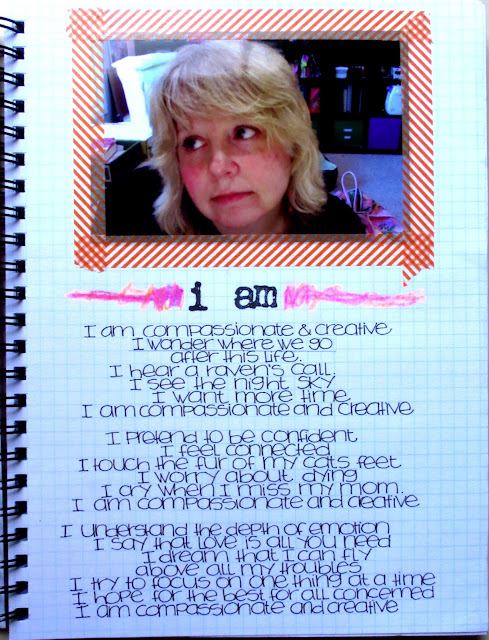 i am
I am compassionate & creative
I wander where we go
after this life.
I hear a raven's call
I see the night sky
I want more time
I am compassionate and creative
I pretend to be confident
I feel connected
I touch the fur of my cats feet
I worry about dying
I cry when I miss my mom.
I am compassionate and creative
I understand the depth of emotion
I say that love is all you need
I dream that I can fly
above all my troubles
I try to focus on one thing at a time
I hope for the best for all concerned
I am compassionate and creative